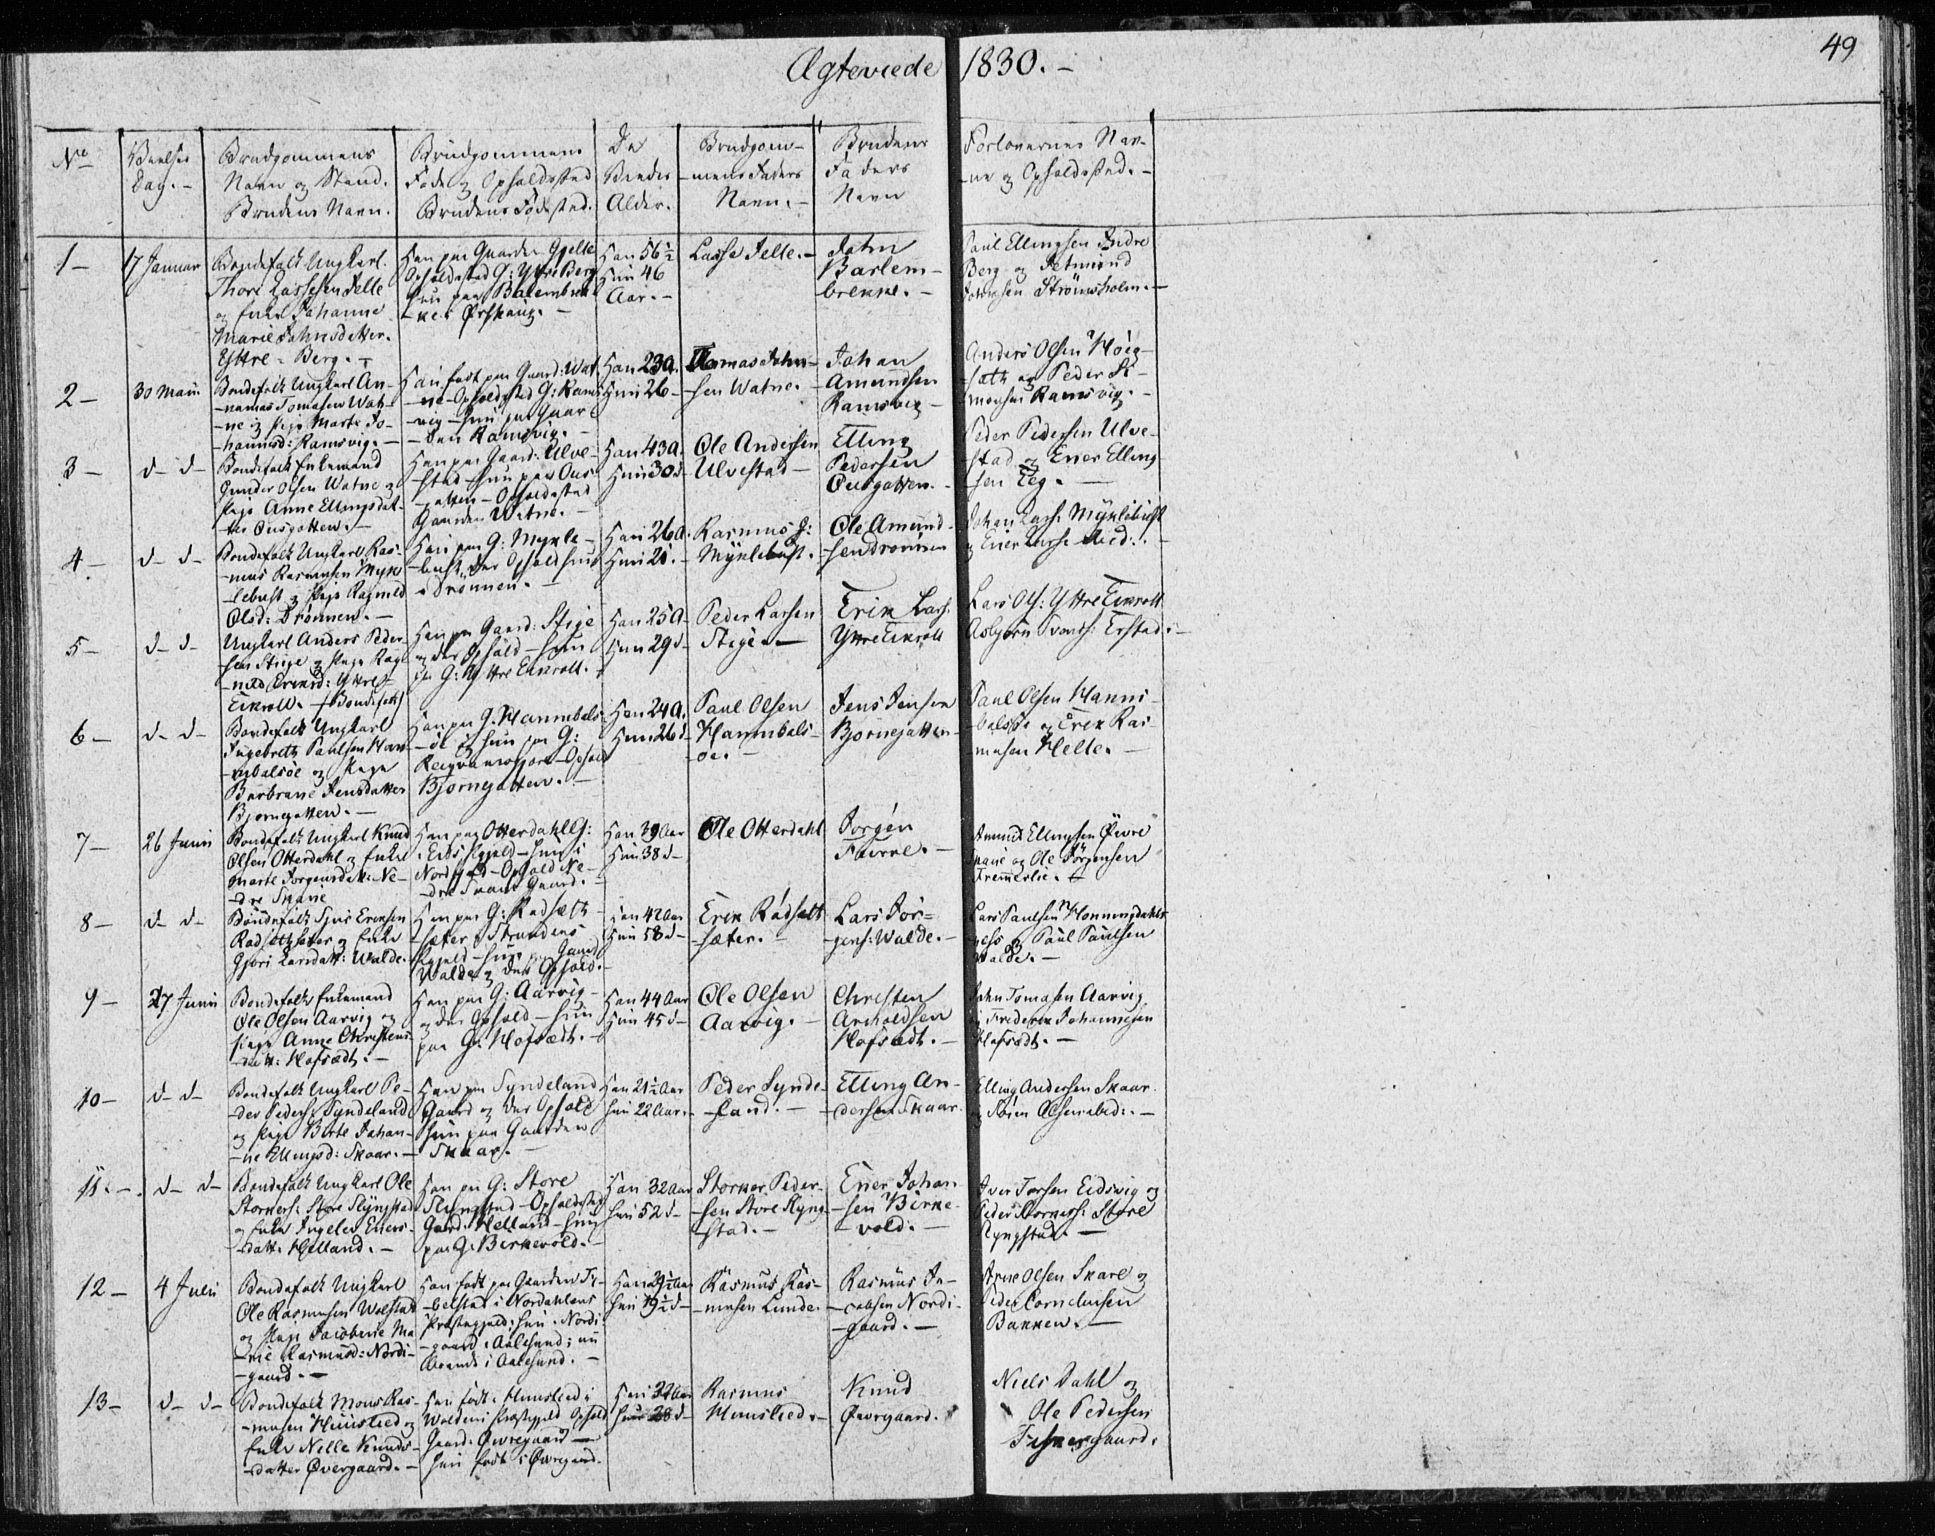 Ægteviede 1830. -
49
No
Vielses
Dag. -
Brudgommens
Navn og Stand.
Brudens Navn.
Brudgommens
Føde og Opholdssted
Brudens Fødested.
De
Viedes
Alder.
Brudgom-
-mens Faders
Navn. -
Brudens
Faders
Navn
Forlovernes Nav-
-ne og Opholdssted. -
1 -
17 Januar
Bondefolk Ungkarl
Thore Lassesen Jelle
og Enke Johanne
Marie Johnsdatter
Yttre - Berg. -
Han paa Gaarden Gjelle
Opholdssted G: Yttre Berg
hun paa Balembrek-
-ke i Ørskoug. -
Han 56½
hun 46
Aar. -
Lasse Jelle. -
John
Barlem-
brekke. -
Paul Ellingsen Indre
Berg og
Johnsen Strømsholm. -
2 -
30 Maii
Bondefolk Ungkarl An-
-nanias Tomasen Wat-
-ne og Pige Marte Jo-
-hannesd: Ramsvig. -
Han født paa Gaard: Wat
-ne - Opholdssted G: Rams
-vig - hun paa Gaar-
-den Ramsvig. -
Han 23 A.
Hun 26 -
Tomas John-
-sen Watne. -
Johan
Amundsen
Ramsvig -
Anders Olsen Høig-
-sæth og Peder Si-
-monsen Ramsvig. -
3 -
d - d -
Bondefolk Enkemand
Gunder Olsen Watne og
Pige Anne Ellingsdat-
-ter Ousgatten. -
Han paa Gaard: Ulve-
-stad - hun paa Ous-
-gatten - Opholdssted
Gaarden Watne. -
Han 43 A.
Hun 30 d -
Ole Andersen
Ulvestad -
Elling
Pedersen
Ousgatten. -
Peder Pedersen Ulve-
-stad og Ener Elling-
-sen Eeg. -
4 -
d - d -
Bondefolk Ungkarl Ras-
-mus Rasmusen Myk-
-lebust og Pige Ragnild
Olsd: Drönnen. -
Han paa G: Mykle-
-bust, der Ophold hun
i Drönnen. -
Han 26 A.
Hun 21. -
Rasmus J:
Myklebust. -
Ole Amund-
-sen Drönnen
Johan Lars: Myklebust
og Ener Lars: ibid: -
5 -
d - d -
Ungkarl Anders Peder-
-sen Stige og Pige Rag-
-nild Eriksd: Yttre
Eikroll. - Bondefolk
Han paa Gaard: Stige
og der Ophold - hun
paa G: Yttre Eikroll.
Han 25 A
Hun 29 d -
Peder Larsen
Stige. -
Erik Lars:
Yttre Eikroll
Lars Ols: Yttre Eikroll
Asbjørn Svends: Erstad. -
6 -
d - d -
Bondefolk Ungkarl
Ingebrett Paulsen Han-
-nibalsöe og Pige
Barbrane Jensdatter
Bjørnegatten. -
Han paa G. Hannibals-
-öe og hun paa G:
Ophold
Bjørnegatten. -
Han 24 A.
Hun 26 d -
Paul Olsen
Hannibals-
-öe. -
Jens Jensen
Bjørnegatten -
Paul Olsen Hanni-
-balsöe og Erik Ras-
-musen Helle. -
7 -
26 Junii
Bondefolk Ungkarl Knud
Olsen Otterdahl og Enke
Marte Jørgensdatt: Ne-
-dre Skarie
Han paa Otterdahl G:
i Eids Prgjeld - hun i
Nordfjord - Ophold Ne-
-dre Skarie Gaard. -
Han 39 Aar
Hun 38 d -
Ole Otterdahl
Jørgen
-
Amund Ellingsen Øvre
Skarie og Ole Jørgensen
Fremmerlie. -
8 -
d - d -
Bondefolk Sjur Eriksen
Rødsethsæter og Enke
Gjøri Larsdatt: Walde. -
Han paa G: Rødsæth-
-sæter i Strandens
Prgjeld - hun paa Gaard
Walde og der Ophold. -
Han 42 Aar
Hun 58 d -
Erik Rødsætt
-sæter. -
Lars Jør-
-gens: Walde. -
Lars Paulsen Honningdahls
-næss og Paul Paulsen
Walde. -
9 -
27 Junii
Bondefolk Enkemand
Ole Olsen Aarvig og
Pige Anne Christens-
-datt: Hofsædt. -
Han paa G: Aarvig -
og der Ophold - hun
paa G: Hofsædt. -
Han 44 Aar
Hun 45 d -
Ole Olsen
Aarvig. -
Christen
Arnholdsen
Hofsædt. -
John Tomasen Aarvig
og Frederik Johannesen
Hofsædt. -
10 -
d - d -
Bondefolk Ungkarl Pe-
-der Peders: Syndeland
og Pige Birte Johan-
-ne Ellingsd: Skaar. -
Han paa Syndeland
Gaard og der Ophold
hun paa Gaarden
Skaar. -
Han 21½ Aar
hun 22 Aar. -
Peder Synde-
-land. -
Elling An-
-dersen Skaar
Elling Andersen Skaar
og Søren Olsen ibid: -
11. -
d - d -
Bondefolk Ungkarl Ole
Storkers: Store Slyngstad
og Enke Ingeleu Eners-
-datt: Helland. -
Han paa G: Store
Slyngstad - Opholdssted
Gaard: Helland - hun
paa G: Birkevold. -
Han 32 Aar
hun 52 d -
Storker Peder-
-sen Store Slyng-
-stad. -
Ener Johan-
-sen Birke-
-vold. -
Iver Torsen Eidsvig og
Peder Storkers: Store
Slyngstad. -
12 -
4 Julii
Bondefolk Ungkarl
Ole Rasmusen Wolstad
og Pige Jacobine Ma-
-rie Rasmusd: Nordi-
-gaard. -
Han født paa Gaarden
i Nordahlens
Præstegjeld; hun Nordi-
-gaard i Aalesund; nu
i Aalesund. -
Han 29½ Aar
hun 19½ d -
Rasmus Ras-
-musen Lunde. -
Rasmus Ja-
-cobsen Nordi-
-gaard. -
Arne Olsen Skare og
Peder Corneliusen
Bakken. -
13 -
d - d -
Bondefolk Mons Ras-
-musen Hunslied og
Enke Nille Knuds-
-datter Øvergaard. -
Han født i Hunslied i
Woldens Præstegjeld Ophold
Gaard: Øvregaard -
hun født i Øvregaard.
Han 32 Aar
hun 28 d -
Rasmus
Hunslied. -
Knud
Øvergaard. -
Niels Dahl og
Ole Pedersen
Fiskergaard.